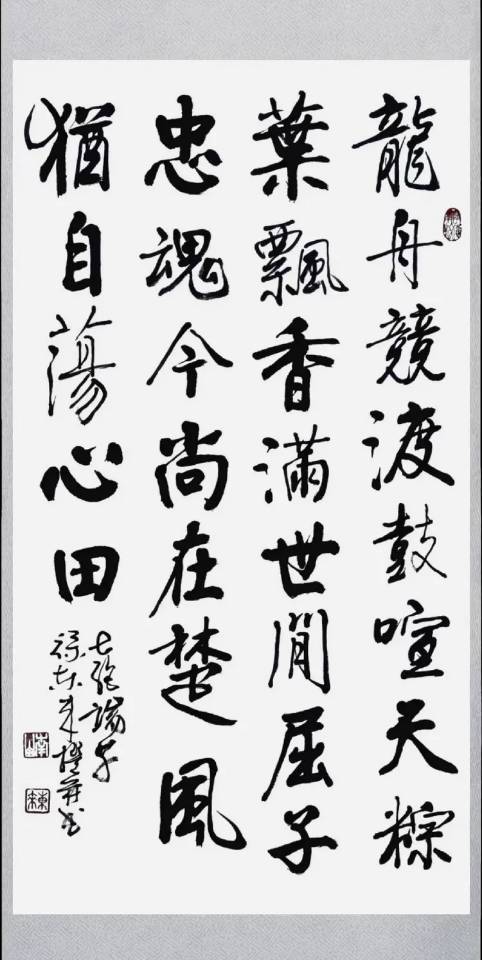 龍舟競渡鼓喧天粽
葉飄香滿世閒屈子
忠魂今尚在楚風
猶自蕩心田
七絶端午
东来撰并书